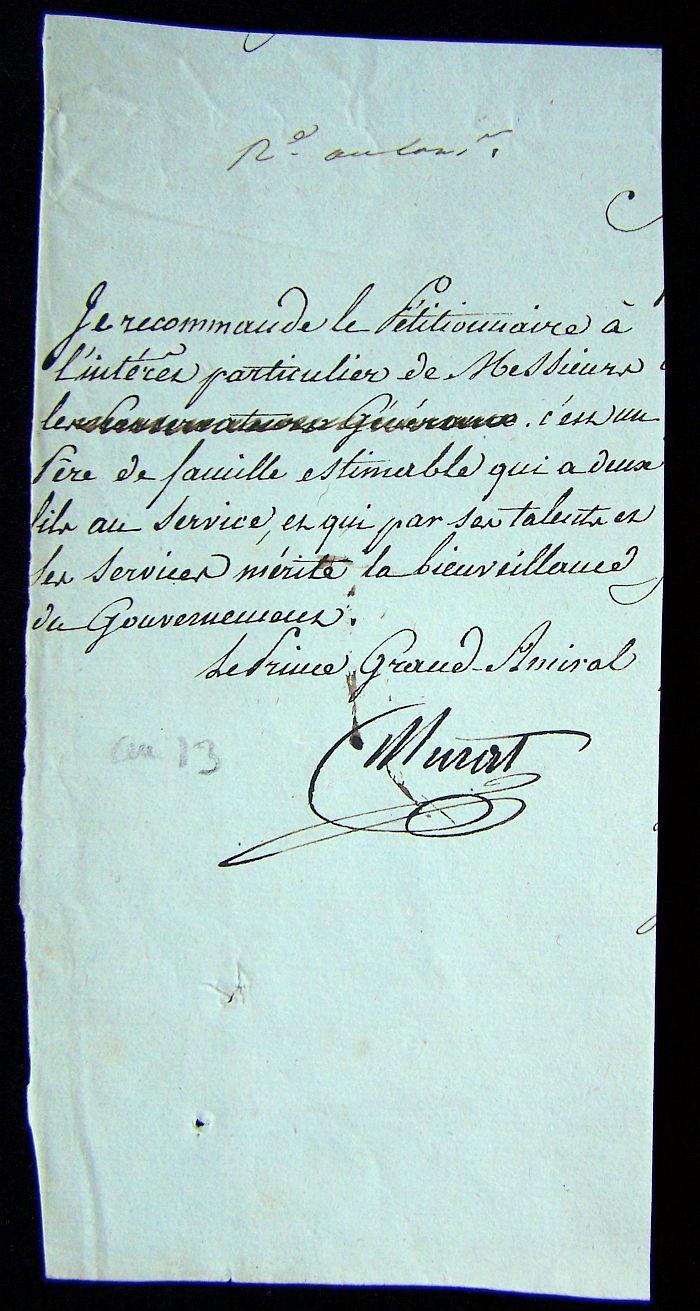 Je recommande le Pétitionnaire à
l'intérêt particulier de Messieurs
les Conservateurs Généraux. c'est un
Père de famille estimable qui a deux
fils au Service, et qui par ses talents et
ses Services mérite la bienveillance
du Gouvernement.
Le Prince Grand-Amiral
Murat
an 13